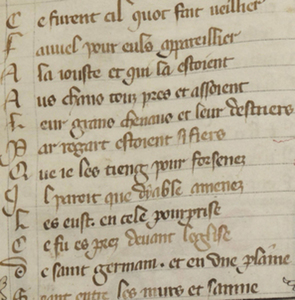 C e furent cil quot fait veillier
F auuel pour euls apareillier
A la iouste et qui la estoient
A us chans touz pres et assoient
L eur grans cheuaus et leur destriers
P ar regart estoient si fiers
Q ue ie les tieng pour forsenez
I l paroit que dyable amenez
L es eust. en cele pourprise
C e fu es prez deuant leglise
D e saint germain. et en une plaine
S eant entre les murs et sainne